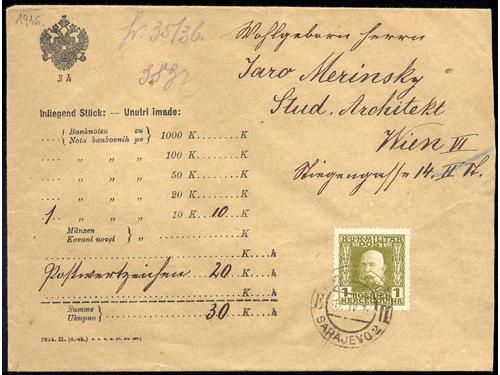 1916.
Nr. 35/36.
38gr
3 h
Wohlgeboren Herrn
Jaro Merinsky
Stud. Architekt
Wien VI
Stiegengasse 14. II St.
Inliegend Stück: — Unutri imade:
.... { Banknoten zu } 1000 K........K
.... { Nota bankovnih po }
.... " " " 100 K........K
.... " " " 50 K........K
.... " " " 20 K........K
1 " " " 10 K..10..K
Münzen
Kovani novci } " K....h
Postwertzeichen 20 K....h
K....h
Summe
Ukupno } 30 K....h
K.u.K. MILITÄR
POST
1 BOSNIEN 1
HERCEGOVINA
SARAJEVO 2